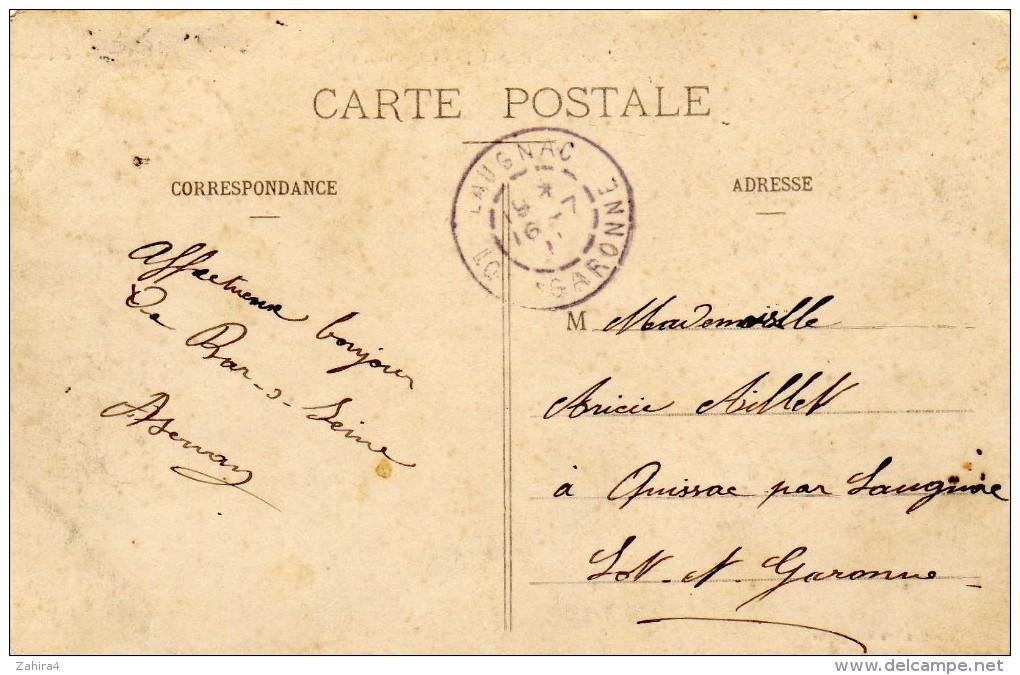 CARTE POSTALE
CORRESPONDANCE
ADRESSE
LAUGNAC
LOT GARONNE
Affectueux bonjour
De Bar-s-Seine
M Mademoiselle
Aricie Aillet
à Quissac par Laugnac
Lot-et-Garonne
Zahira4
www.delcampe.net